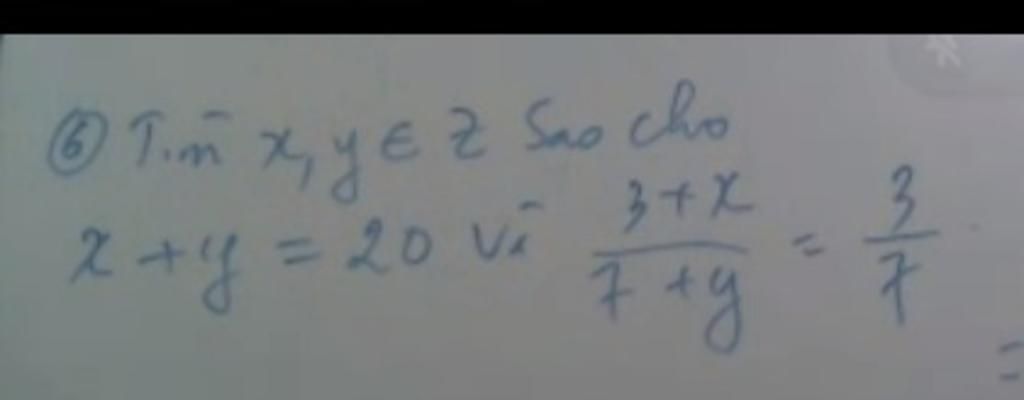 ⑥ Tìm x, y ∈ Z Sao cho
x + y = 20 vì \frac{3+x}{7+y} = \frac{3}{7}
=